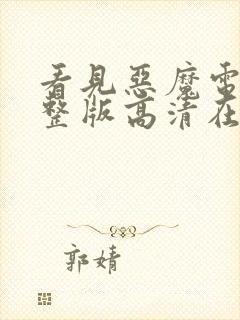 看見惡魔電
整版高清在
郭婧